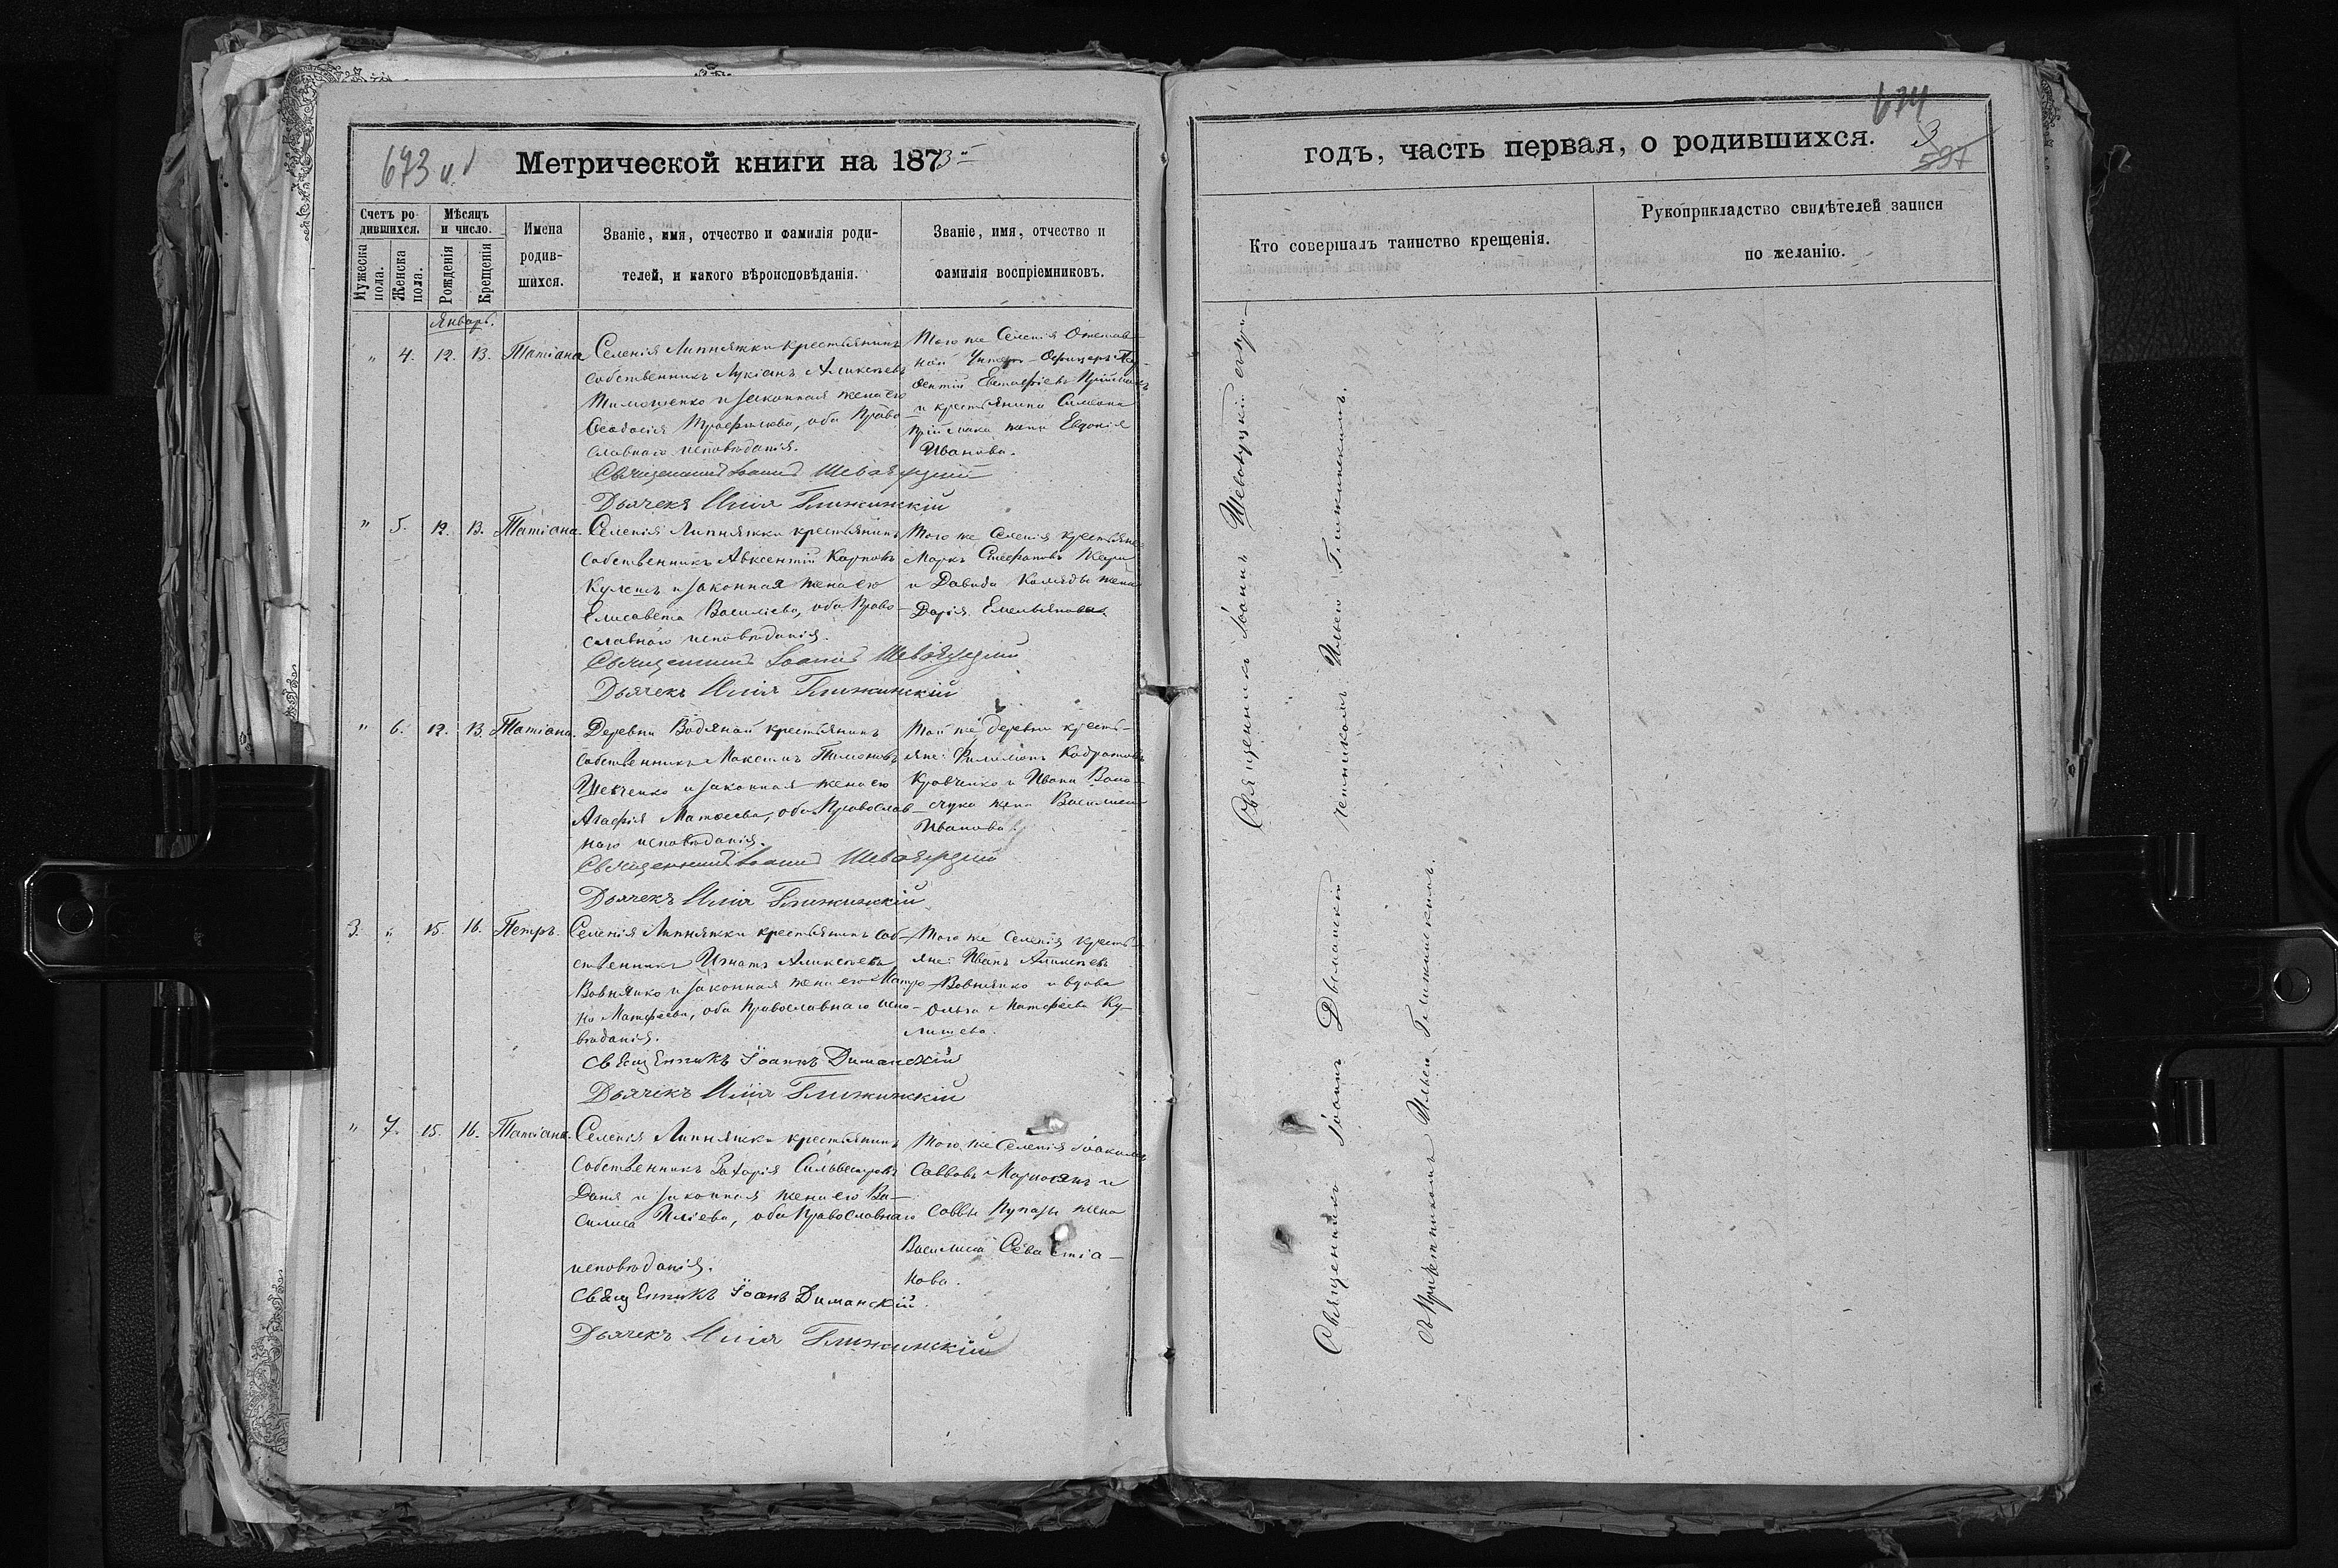 673 и 1
Метрической книги на 1873й
Счетъ ро-
дившихся.
Мужеска пола.
Женска пола.
Мѣсяцъ
и число.
Рожденія
Крещенія
Имена
родив-
шихся.
Званіе, имя, отчество и фамилія роди-
телей, и какого вѣроисповѣданія.
Званіе, имя, отчество и
фамилія воспріемниковъ.
Январь.
" 4. 12. 13. Татіана
Селенія Липняжки крестьянинъ
собственникъ Лукіанъ Алексѣевъ
Тимошенко и законная жена его
Ѳеодосія Трофимова, оба Право-
славнаго исповѣданія.
Священникъ Іоаннъ
Дьячекъ Илія
Того же Селенія Отстав-
ной Унтеръ-Офицеръ
и крестьянина Симеона
жена Евдокія
Иванова.
" 5. 12. 13. Татіана.
Селенія Липняжки крестьянинъ
собственникъ Авксентій Карповъ
Кулешъ и законная жена его
Елисавета Василіева, оба Право-
славнаго исповѣданія.
Священникъ Іоаннъ
Дьячекъ Илія
Того же Селенія крестьяне
Маркъ Стефановъ
и Давида Коляды жена
Дарія Емельянова.
" 6. 12. 13. Татіана.
Деревни Водяной крестьянинъ
собственникъ Максимъ Тимоновъ
Шевченко и законная жена его
Агафія Матѳеева, оба Православ-
наго исповѣданія.
Священникъ Іоаннъ
Дьячекъ Илія
Той же деревни кресть-
яне: Филимонъ
Кравченко и Ивана
жена Василиса
Иванова.
3. " 15. 16. Петръ.
Селенія Липняжки крестьянинъ соб-
ственникъ Игнатъ Алексѣевъ
Вовнянко и законная жена его Матро-
на Матфеева, оба Православнаго испо-
вѣданія.
Священникъ Іоаннъ Диманскій
Дьячекъ Илія
Того же Селенія кресть-
яне: Иванъ Алексѣевъ
Вовнянко и вдова
Ольга Матфеева Ку-
лишева.
" 7. 15. 16. Татіана.
Селенія Липняжки крестьянинъ
собственникъ Захарія Сильвестровъ
и законная жена его Ва-
силиса Иліева, оба Православнаго
исповѣданія.
Священникъ Іоаннъ Диманскій.
Дьячекъ Илія
Того же Селенія Іоакимъ
Саввовъ и
Саввы жена
Василиса Севастіа-
нова.
634
годъ, часть первая, о родившихся.
3
597
Кто совершалъ таинство крещенія.
Рукоприкладство свидѣтелей записи
по желанію.
Священникъ Іоаннъ
Ильею
Священникъ Іоаннъ Дыманскій
съ Причетникомъ Ильею